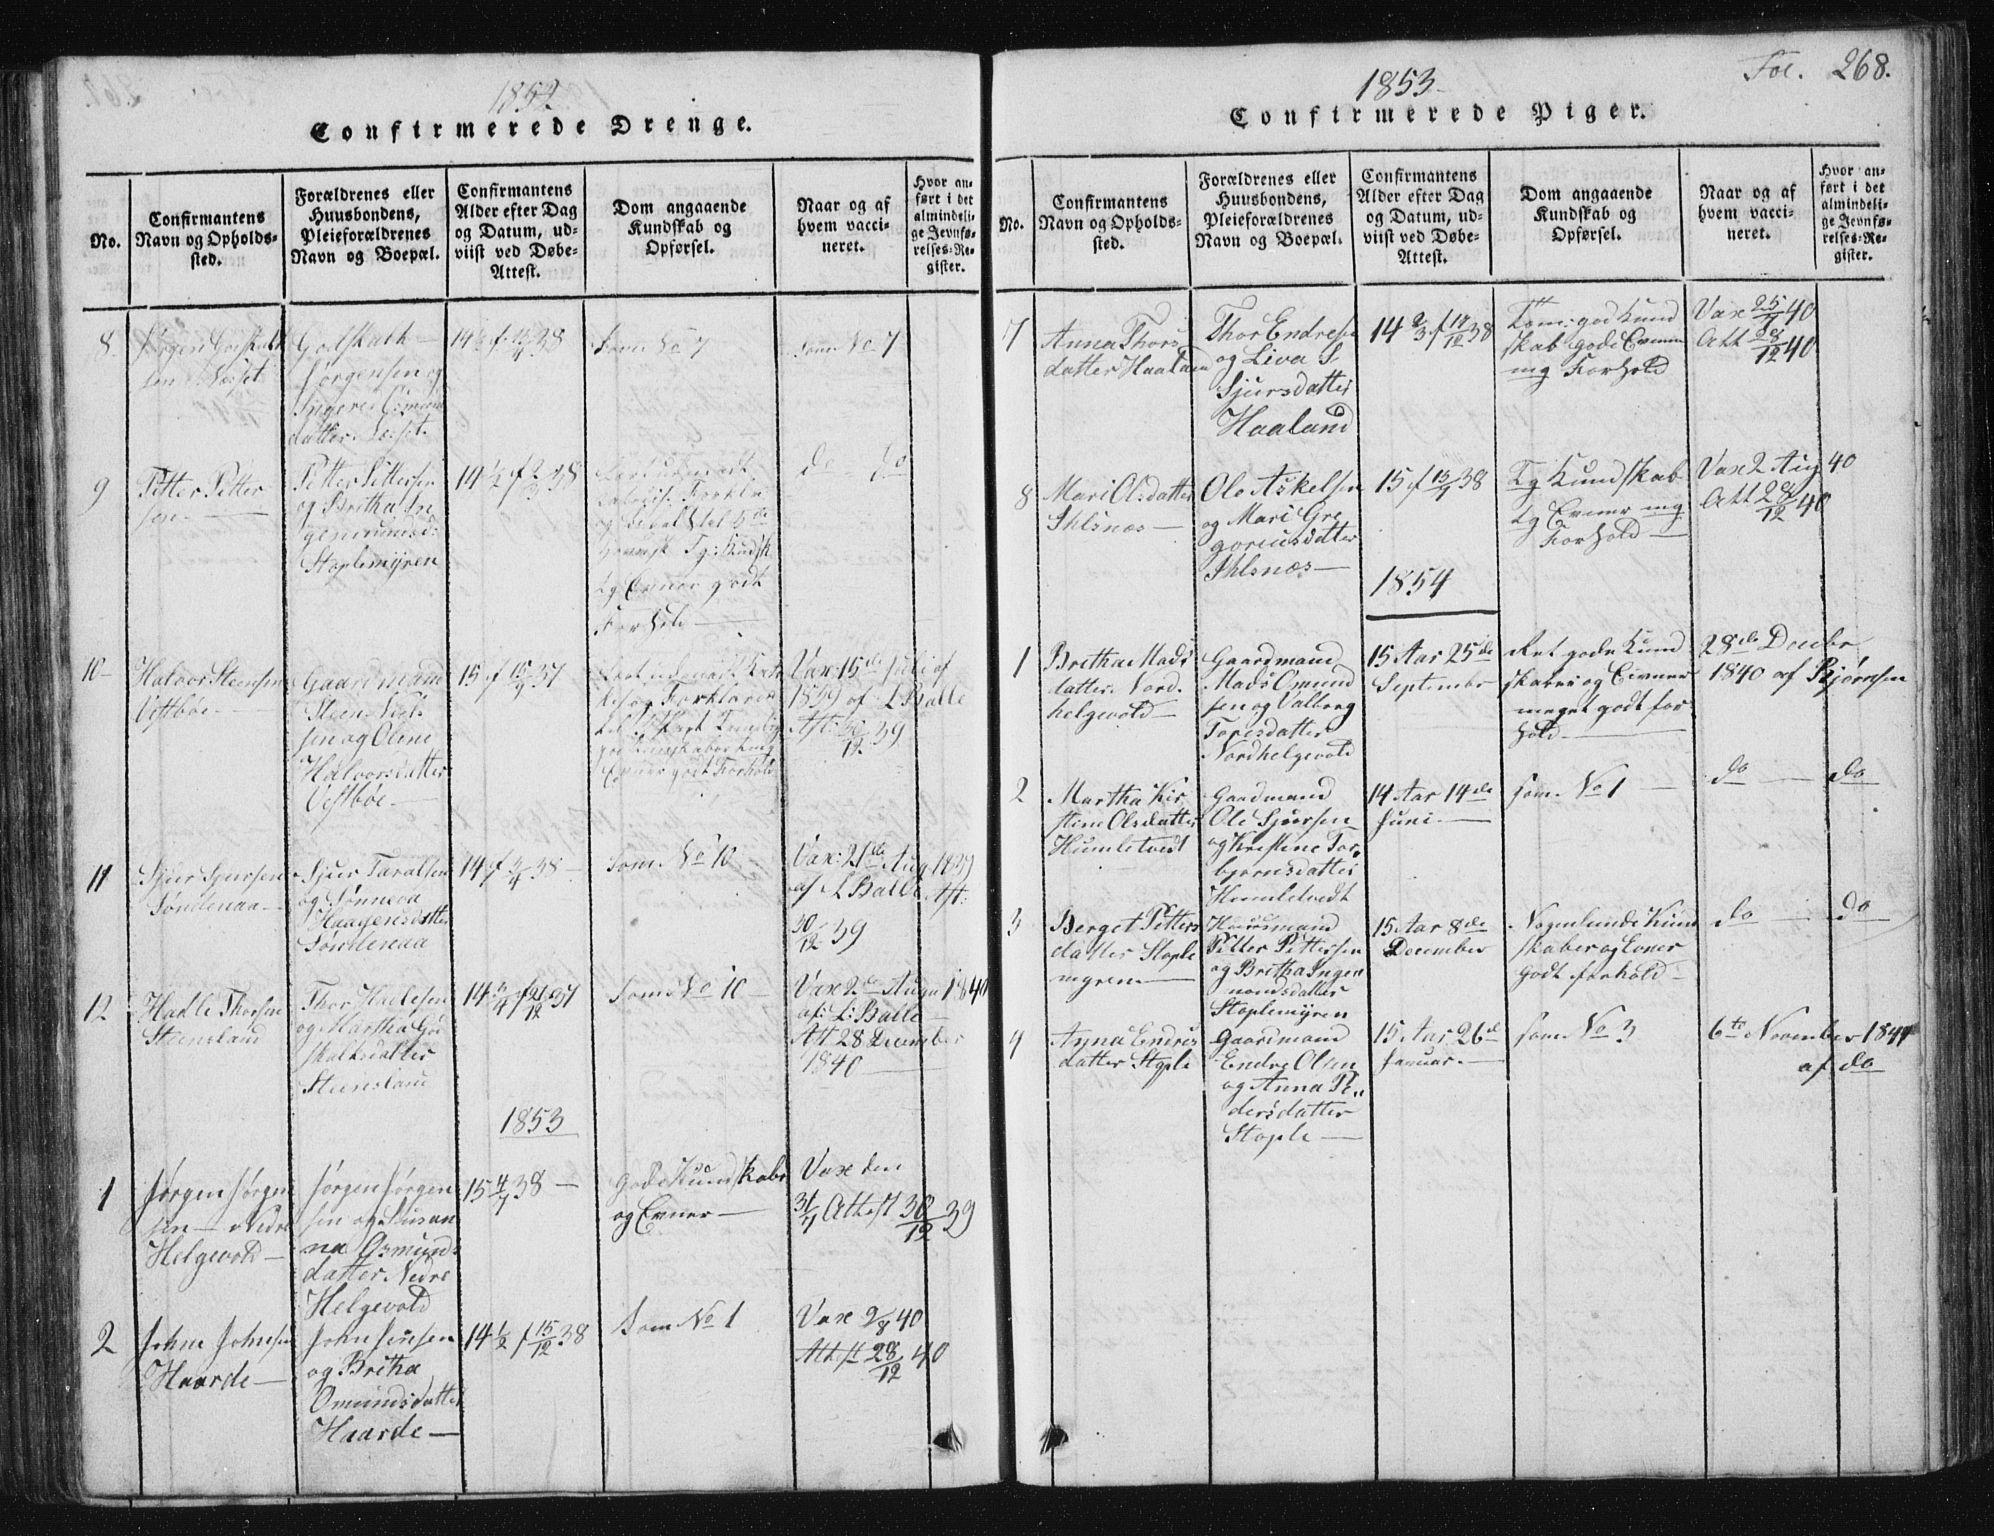 1852.
Confirmerede Drenge.
No.
Confirmantens
Navn og Opholds-
sted.
Forældrenes eller
Huusbondens,
Pleieforældrenes
Navn og Boepæl.
Confirmantens
Alder efter Dag
og Datum, ud-
viist ved Døbe-
Attest.
Dom angaaende
Kundskab og
Opførsel.
Naar og af
hvem vacci-
neret.
Hvor an-
ført i det
almindeli-
ge Jevnfø-
relses-Re-
gister.
8.
Jørgen Godskalk
sen
Godskalk
Jørgensen og
datter
38
Som No 7
Som No 7
9
Pitter Pitter
sen
Pitter Pittersen
og Britha In
gemundsd:
Stoplemyren
14 1/2 f 2/3 38
Forhold
do do
10
Halvor Steensen
Vestbøe
Gaardmand
Steen Niel
sen og Oline
Halvorsdatter
Vestbøe
15 f 37
godt Forhold
Vax: 15de Juli af
1839 af L Balle
Att: 30/12 39
11
Sjur Sjursen
Søndenaa
Sjur Taralsen
og Sønneva
Haagensdatter
Søndenaa
14 f 3/4 38
Som No 10
Vax: 21de Aug 1839
af L Balle Att:
30/12 39
12
Hadle Thorsen
Steensland
Thor Hadlesen
og Martha God
skalksdatter
Steensland
14 3/4 f 21/12 37
Som No 10
Vax 2de Augu 1840
af: L: Balle
Att 28 December
1840
1853
1
Jørgen Jørgen
sen Nedre
Helgevold
Jørgen Jørgen
sen og Susan
na Osmunds
datter Nedre
Helgevold
15 4/7 38
gode Kundskabe
og Evner
Vax den
31/7 Attest 30/12 39
2
John Johnsen
Haarde
John Jensen
og Britha
Omundsdatter
Haarde
14 1/2 f 15/12 38
Som No 1
Vax 2/8 40
Attest 28/12 40
1853
Fol. 268.
Confirmerede Piger.
No.
Confirmantens
Navn og Opholds-
sted.
Forældrenes eller
Huusbondens,
Pleieforældrenes
Navn og Boepæl.
Confirmantens
Alder efter Dag
og Datum, ud-
viist ved Døbe-
Attest.
Dom angaaende
Kundskab og
Opførsel.
Naar og af
hvem vacci-
neret.
Hvor an-
ført i det
almindeli-
ge Jevnfø-
relses-Re-
gister.
7
Anna Thors
datter Haaland
Thor Endresen
og Liva S
Sjursdatter
Haaland
14 2/3 f 14/12 38
god Kund
skab gode Evner
mg Forhold
Vax 25/7 40
Att 28/12 40
8
Mari Olsdatter
Ihlsnæs
Ole Askelsen
og Mari Gre
goriusdatter
Ihlsnæs
15 f 38
Tg Kundskab
tg Evner mg
Forhold
Vax 2 Aug 40
Att 28/12 40
1854
1
Britha Mads
datter Nord
helgevold
Gaardmand
Mads Omund
sen og Valborg
Torisdatter
Nordhelgevold
15 Aar 25de
September
Ret gode Kund
skaber og Evner
meget godt for
hold
28de Decebr
1840 af Bjørnsen
2
Martha Kir
stine Olsdatter
Humletvedt
Gaardmand
Ole Sjursen
og Kristine Tor,
bjørnsdatter
Humletvedt
14 Aar 14de
Juni
som No 1
do do
3
Berget Pitters
datter Stople
myren
Huusmand
Pitter Pittersen
og Britha Inge,
mundsdatter
Stoplemyren
15 Aar 8de
December
Nogenlunde Kund
skaber og Evner
godt forhold
do do
4
Anna Endres
datter Stople
Gaardmand
Endre Olsen
og Anna Pe,
dersdatter
Stople
15 Aar 26de
Januar
som No 3
6te November 1841
af do